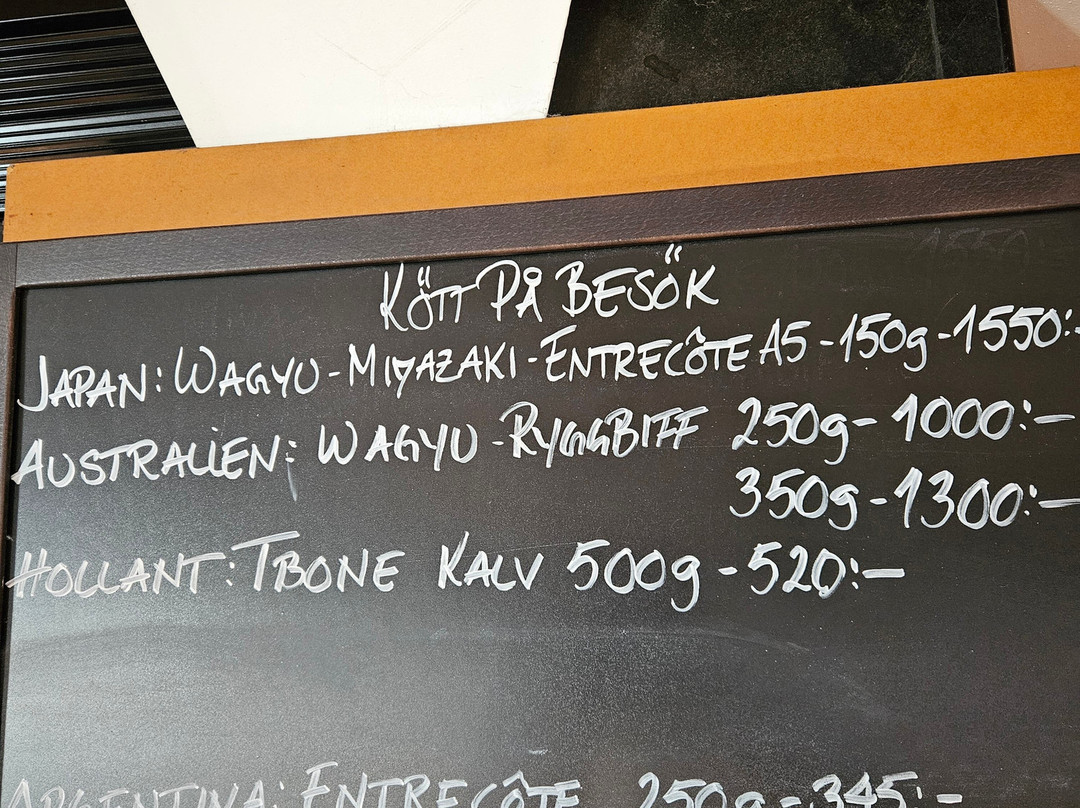 KÖTT PÅ BESÖK
JAPAN: WAGYU - MIYAZAKI - ENTRECÔTE A5 - 150g - 1550:-
AUSTRALIEN: WAGYU - RYGGBIFF 250g - 1000:-
350g - 1300:-
HOLLANT: TBONE KALV 500g - 520:-
ARGENTINA: ENTRECÔTE 250g - 345:-